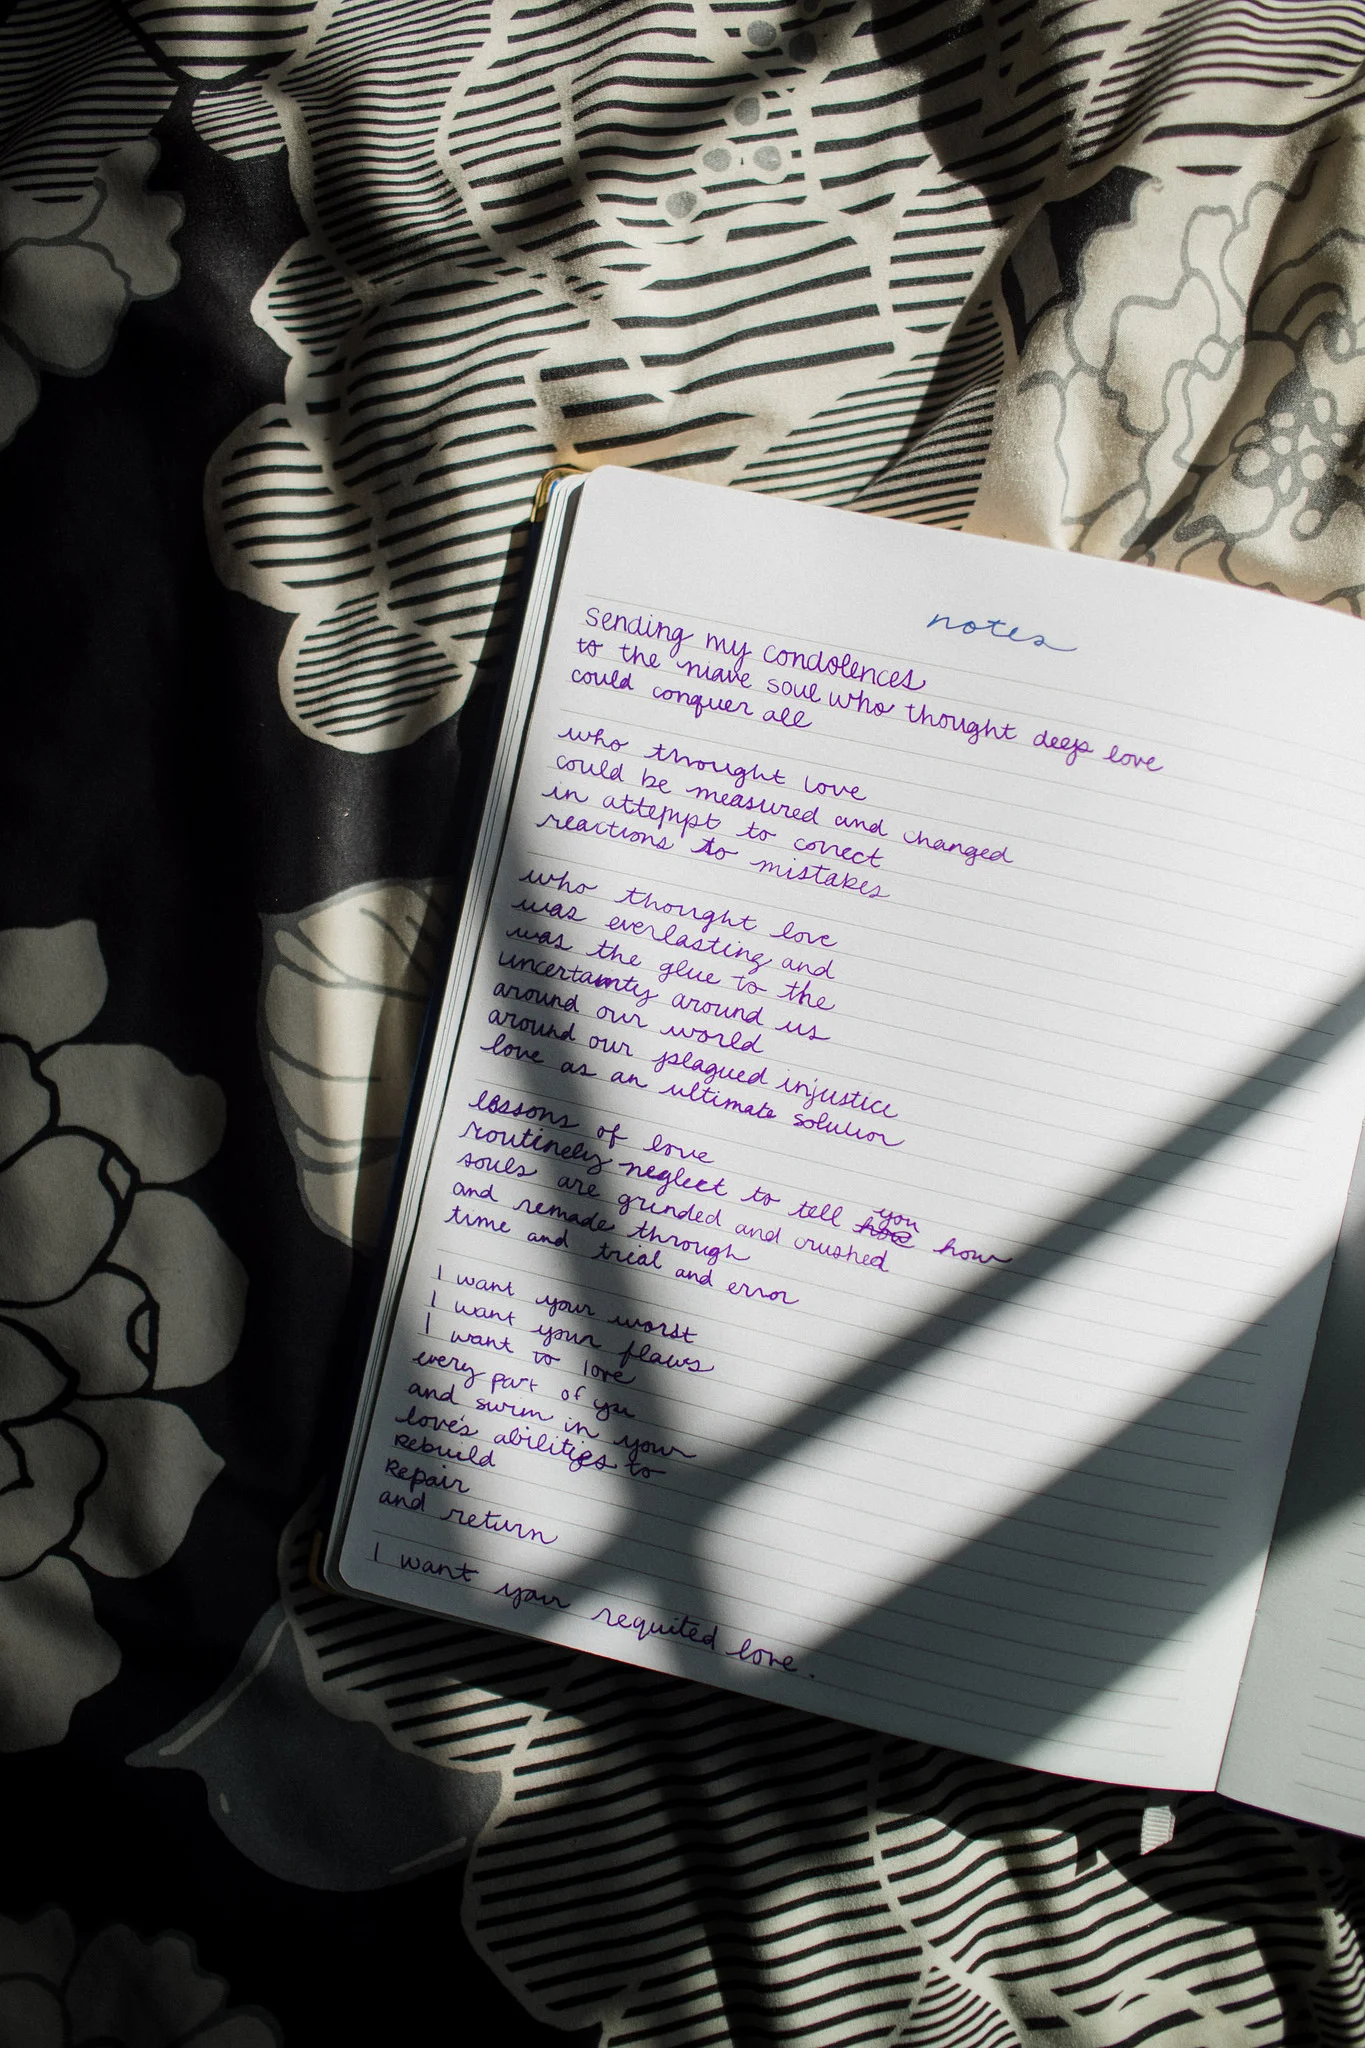 notes
sending my condolences
to the niave soul who thought deep love
could conquer all
who thought love
could be measured and changed
in attempt to correct
reactions to mistakes
who thought love
was everlasting and
was the glue to the
uncertainty around us
around our world
around our plagued injustice
love as an ultimate solution
lessons of love
routinely neglect to tell you how
souls are grinded and crushed
and remade through
time and trial and error
I want your worst
I want your flaws
I want to love
every part of you
and swim in your
love's abilities to
Rebuild
Repair
and return
I want your requited love.